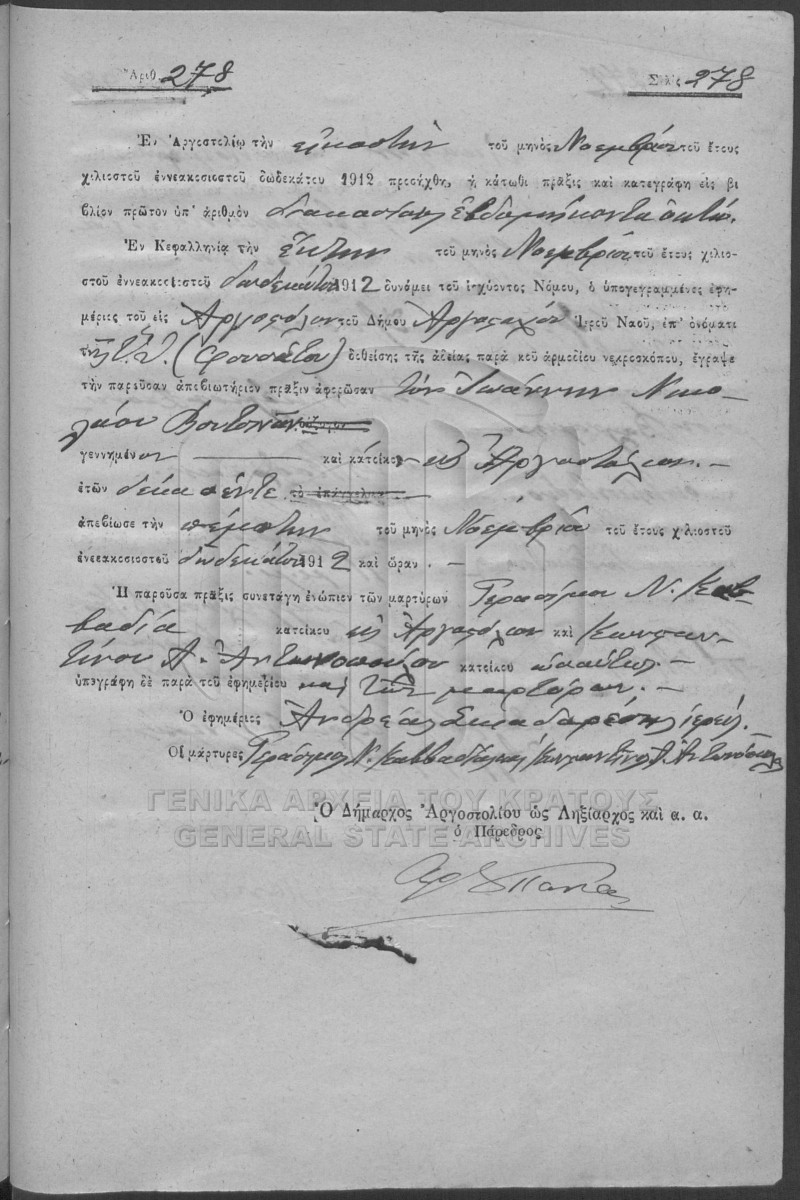 Ἀριθ. 278 Σελὶς 278
Ἐν Ἀργοστολίῳ τὴν εἰκοστὴν τοῦ μηνὸς Νοεμβρίου τοῦ ἔτους
χιλιοστοῦ ἐννεακοσιοστοῦ δωδεκάτου 1912 προσήχθη, ἡ κάτωθι πρᾶξις καὶ κατεγράφη εἰς βι
βλίον πρῶτον ὑπ' ἀριθμὸν διακοσιοστὸν ἑβδομήκοντα ὀκτώ.
Ἐν Κεφαλληνίᾳ τὴν ἕκτην τοῦ μηνὸς Νοεμβρίου τοῦ ἔτους χιλιο-
στοῦ ἐννεακοσιοστοῦ δωδεκάτου 1912 δυνάμει τοῦ ἰσχύοντος Νόμου, ὁ ὑπογεγραμμένος ἐφη-
μέριος τοῦ εἰς Ἀργοστόλιον τοῦ Δήμου Ἀργοστολίου Ἱεροῦ Ναοῦ, ἐπ' ὀνόματι
τῆς (Φουσάτου) δοθείσης τῆς ἀδείας παρὰ τοῦ ἁρμοδίου νεκροσκόπου, ἔγραψε
τὴν παροῦσαν ἀποβιωτήριον πρᾶξιν ἀφορῶσαν τὸν Ἰωάννην Νικο-
λάου
γεννημένον καὶ κάτοικον εἰς Ἀργοστόλιον. —
ἐτῶν δέκα πέντε τὸ ἐπάγγελμα —
ἀπεβίωσε τὴν πέμπτην τοῦ μηνὸς Νοεμβρίου τοῦ ἔτους χιλιοστοῦ
ἐνεεακοσιοστοῦ δωδεκάτου 1912 καὶ ὥραν . —
Ἡ παροῦσα πρᾶξις συνετάγη ἐνώπιον τῶν μαρτύρων Γερασίμου Ν. Καβ-
βαδία κατοίκου εἰς Ἀργοστόλιον καὶ Κωνσταν-
τίνου Α. Ἀντωνοπούλου κατοίκου ὡσαύτως. —
ὑπεγράφη δὲ παρὰ τοῦ ἐφημερίου καὶ τῶν μαρτύρων. —
Ὁ ἐφημέριος Ἀνδρέας Σκιαδαρέσης ἱερεύς.
Οἱ μάρτυρες Γεράσιμος Ν. Καββαδίας Κωνσταντῖνος Α. Ἀντωνόπουλος
ΓΕΝΙΚΑ ΑΡΧΕΙΑ ΤΟΥ ΚΡΑΤΟΥΣ
Ὁ Δήμαρχος Ἀργοστολίου ὡς Ληξίαρχος καὶ α. α.
GENERAL STATE ARCHIVES
ὁ Πάρεδρος